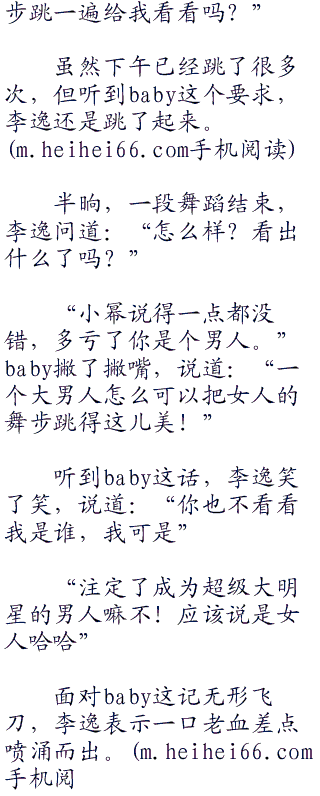 步跳一遍给我看看吗？”
虽然下午已经跳了很多
次，但听到baby这个要求，
李逸还是跳了起来。
(m.heihei66.com手机阅读)
半晌，一段舞蹈结束，
李逸问道：“怎么样？看出
什么了吗？”
“小幂说得一点都没
错，多亏了你是个男人。”
baby撇了撇嘴，说道：“一
个大男人怎么可以把女人的
舞步跳得这儿美！”
听到baby这话，李逸笑
了笑，说道：“你也不看看
我是谁，我可是”
“注定了成为超级大明
星的男人嘛不！应该说是女
人哈哈”
面对baby这记无形飞
刀，李逸表示一口老血差点
喷涌而出。(m.heihei66.com
手机阅